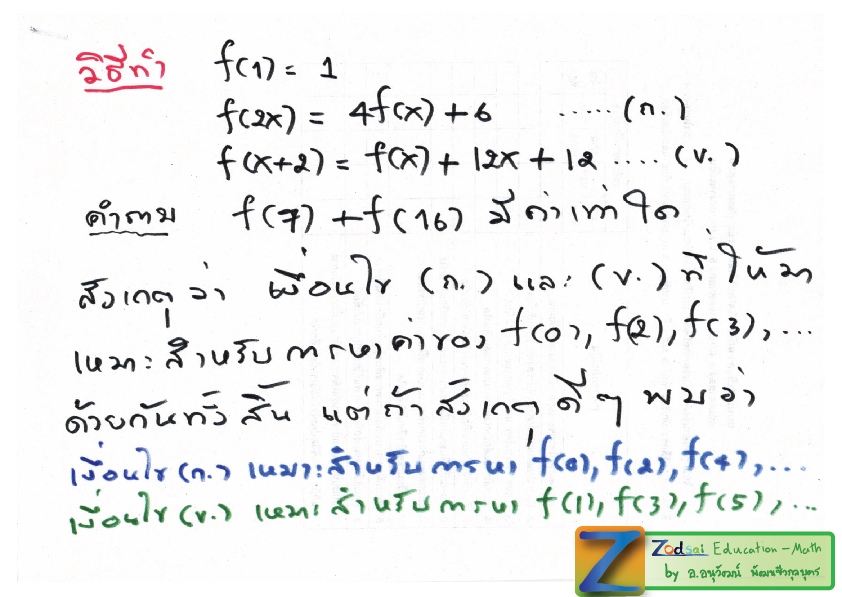 วิธีทำ f(1) = 1
f(2x) = 4f(x) + 6 ..... (ก.)
f(x+2) = f(x) + 12x + 12 .... (ข.)
คำถาม f(7) + f(16) มีค่าเท่าใด
สังเกตุว่า เงื่อนไข (ก.) และ (ข.) ที่ให้มา
เหมาะสำหรับการหาค่าของ f(0), f(2), f(3), ...
ด้วยกันทั้งสิ้น แต่ถ้าสังเกตุดีๆ พบว่า
เงื่อนไข (ก.) เหมาะสำหรับการหา f(0), f(2), f(4), ...
เงื่อนไข (ข.) เหมาะสำหรับการหา f(1), f(3), f(5), ...
Z Zodsai Education - Math
by อ.อนุวัฒน์